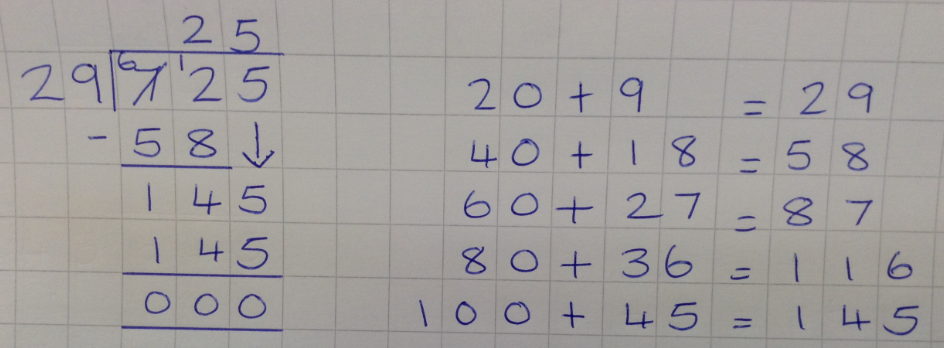 25
29 6 7 1 25
- 58 ↓
145
145
000
20 + 9 = 29
40 + 18 = 58
60 + 27 = 87
80 + 36 = 116
100 + 45 = 145